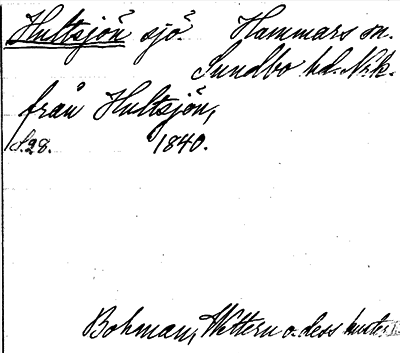 Hultsjön sjö. Hammars sn.
Sundbo hd. Nrk.
från Hultsjön,
S.28. 1840.
Bohman, Wettern o. dess kuster